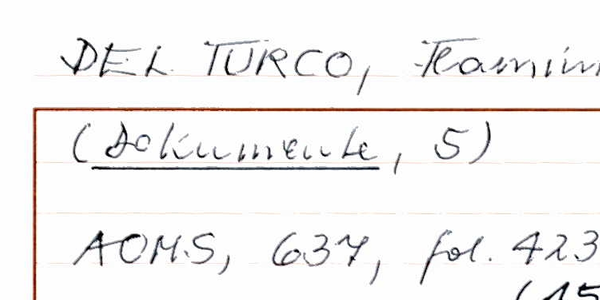 DEL TURCO, Flamin
(Dokumente, 5)
AOMS, 637, fol. 423
(15